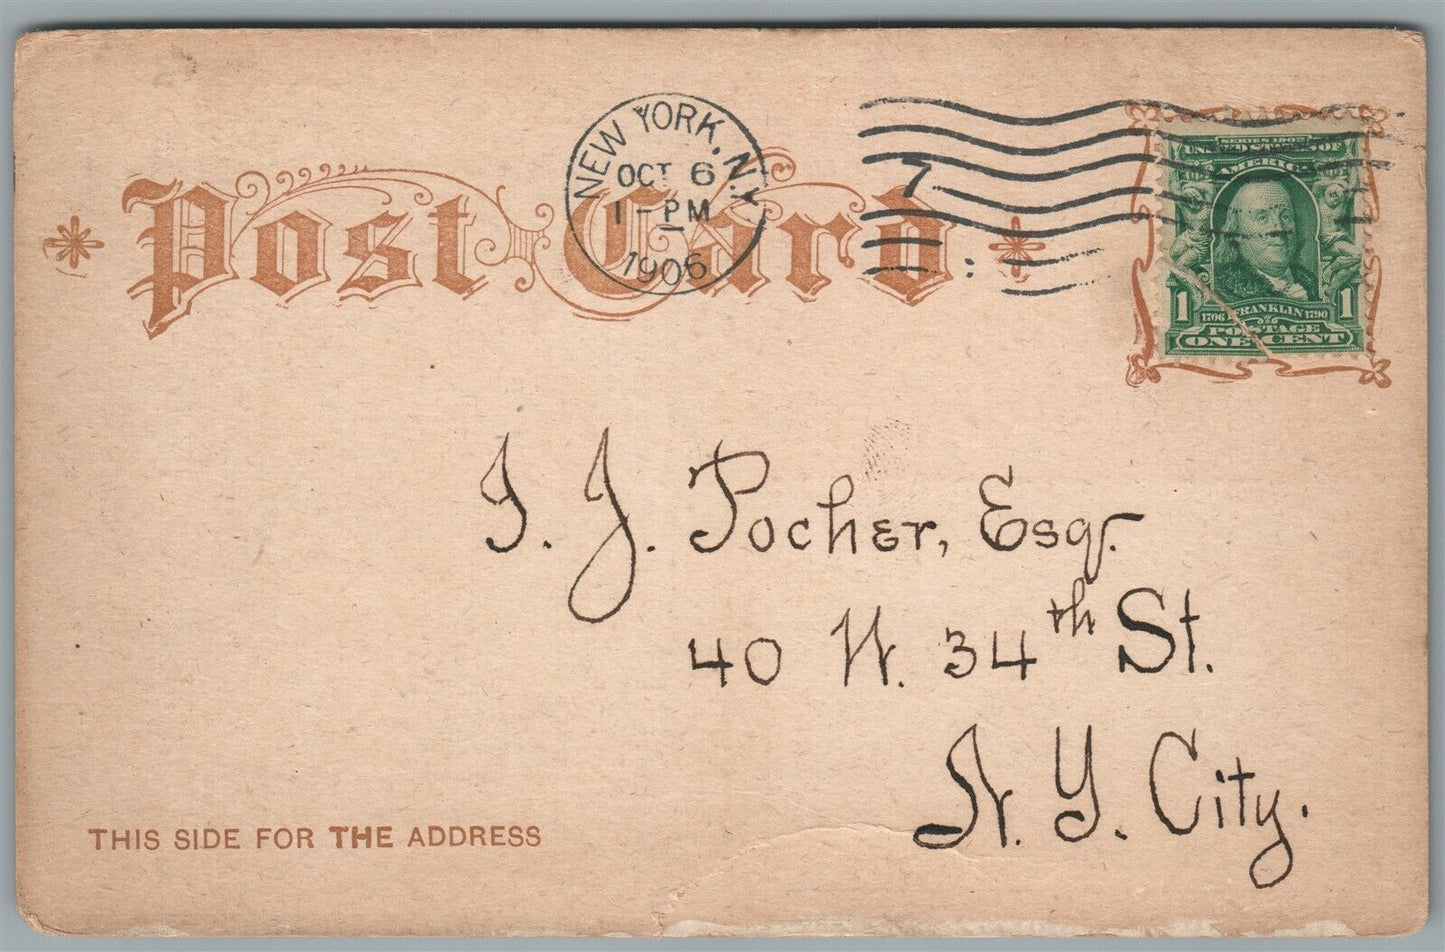 Post Card
NEW YORK, N.Y.
OCT 6
1-PM
1906
7
SERIES 1902
UNITED STATES OF
AMERICA
1706 FRANKLIN 1790
1 POSTAGE 1
ONE CENT
I. J. Pocher, Esqr.
40 W. 34th St.
N. Y. City.
THIS SIDE FOR THE ADDRESS